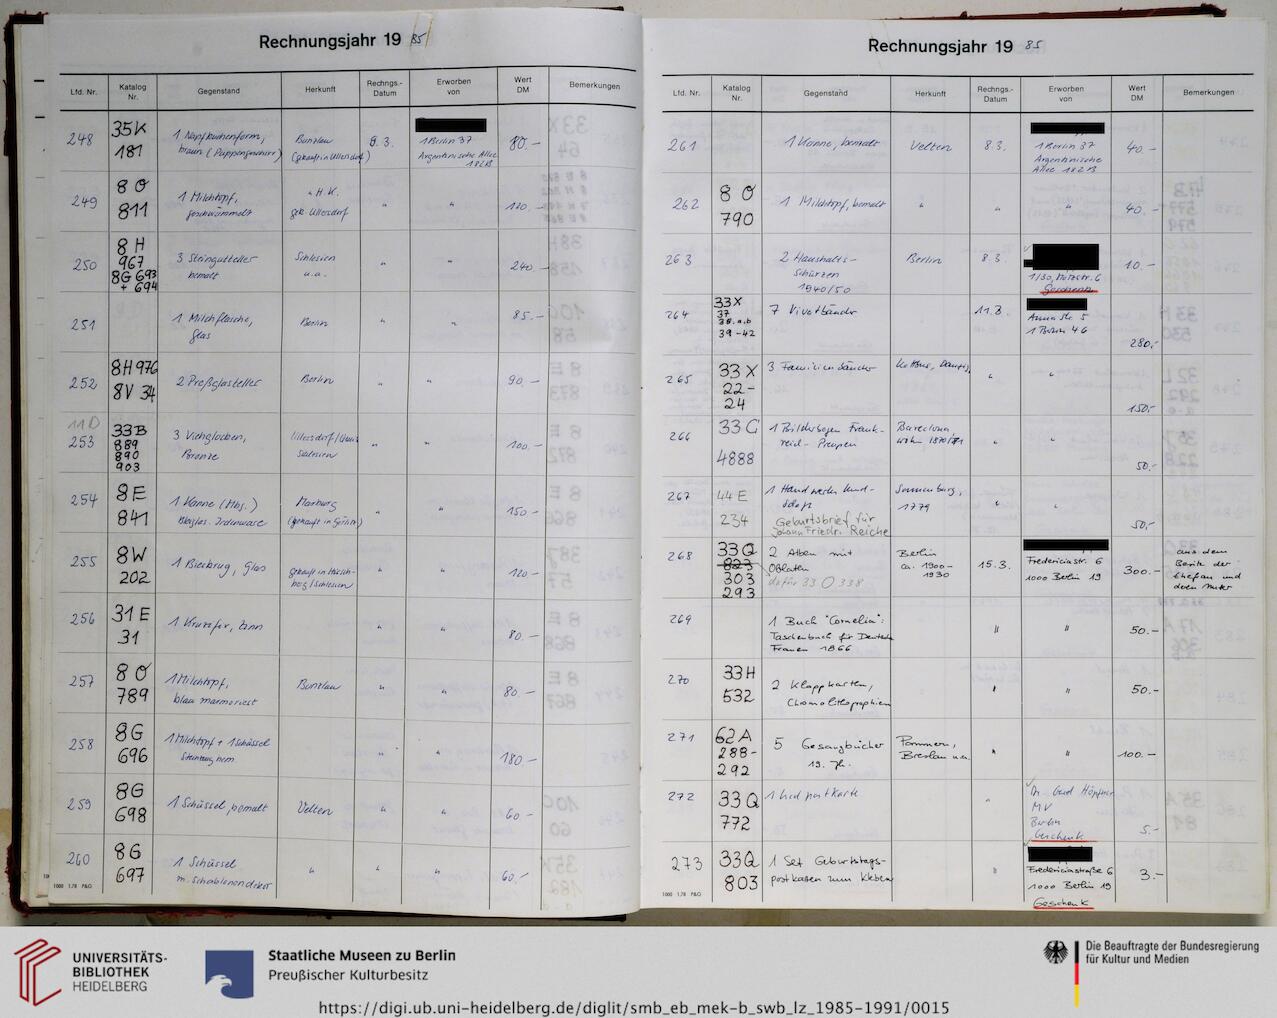 Rechnungsjahr 19 85
Lfd. Nr. Katalog Nr. Gegenstand Herkunft Rechngs.-Datum Erworben von Wert DM Bemerkungen
248 35K 181 1 Napfkuchenform, braun (Puppengeschirr) Bunzlau (gekauft in Ullersdorf) 9.3. 1 Berlin 37 Argentinische Allee 182B 80.-
249 8 O 811 1 Milchtopf, geschwämmelt " H.K. gek. Ullersdorf " " 120.-
250 8 H 967 8G 693 + 694 3 Steingutteller bemalt Schlesien u.a. " " 240.-
251 1 Milchflasche, Glas Berlin " " 85.-
252 8H 976 8V 34 2 Preßglasteller Berlin " " 90.-
11 D
253 33B 889 890 903 3 Viehglocken, Bronze Ullersdorf/ Schlesien " " 100.-
254 8E 841 1 Kanne (Hbg.) Irdenware Marburg (gekauft in Görlitz) " " 150.-
255 8W 202 1 Bierkrug, Glas gekauft in Hirschberg/Schlesien " " 120.-
256 31 E 31 1 Kruzifix, Zinn " " 80.-
257 8 O 789 1 Milchtopf, blau marmoriert Bunzlau " " 80.-
258 8G 696 1 Milchtopf + 1 Schüssel " " 180.-
259 8G 698 1 Schüssel, bemalt Velten " " 60.-
260 8G 697 1 Schüssel m. Schablonendekor " " " 60.-
1000 1.78 P&G
Rechnungsjahr 19 85
Lfd. Nr. Katalog Nr. Gegenstand Herkunft Rechngs.-Datum Erworben von Wert DM Bemerkungen
261 1 Kanne, bemalt Velten 8.3. 1 Berlin 37 Argentinische Allee 182B 40.-
262 8 O 790 1 Milchtopf, bemalt " " " 40.-
263 2 Haushalts-Schürzen 1940/50 Berlin 8.3. 1/30, Motzstr. 6 Geschenk 10.-
264 33X 37 38.a,b 39-42 7 Vivatbänder 11.3. Annastr. 5 1 Berlin 46 280.-
265 33 X 22-24 3 Familienbänder Kottbus, Danzig, " " 150.-
266 33 G 4888 1 Bilderbogen Frankreich-Preußen Barcelona, 1870/71 " " 50.-
267 44 E 234 1 Handwerks Kundschaft Geburtsbrief für Johann Friedr. Reiche Sonnenburg, 1779 " " 50,-
268 33 Q 823 303 293 2 Alben mit Oblaten dafür 33 O 338 Berlin ca. 1900-1930 15.3. Fredericiastr. 6 1000 Berlin 19 300.- aus dem Besitz der Ehefrau und deren Mutter
269 1 Buch "Cornelia": Taschenbuch für Deutsche Frauen 1866 " " 50.-
270 33H 532 2 Klappkarten, Chromolithographien " " 50.-
271 62A 288-292 5 Gesangbücher 19. Jh. Pommern, Breslau u.a. " " 100.-
272 33 Q 772 1 Liedpostkarte " Dr. Gerd Höpfner MV Berlin Geschenk 5.-
273 33Q 803 1 Set Geburtstags-postkarten zum Kleben " Fredericiastraße 6 1000 Berlin 19 Geschenk 3.-
1000 1.78 P&G
UNIVERSITÄTS-
BIBLIOTHEK
HEIDELBERG
Staatliche Museen zu Berlin
Preußischer Kulturbesitz
Die Beauftragte der Bundesregierung
für Kultur und Medien
https://digi.ub.uni-heidelberg.de/diglit/smb_eb_mek-b_swb_lz_1985-1991/0015